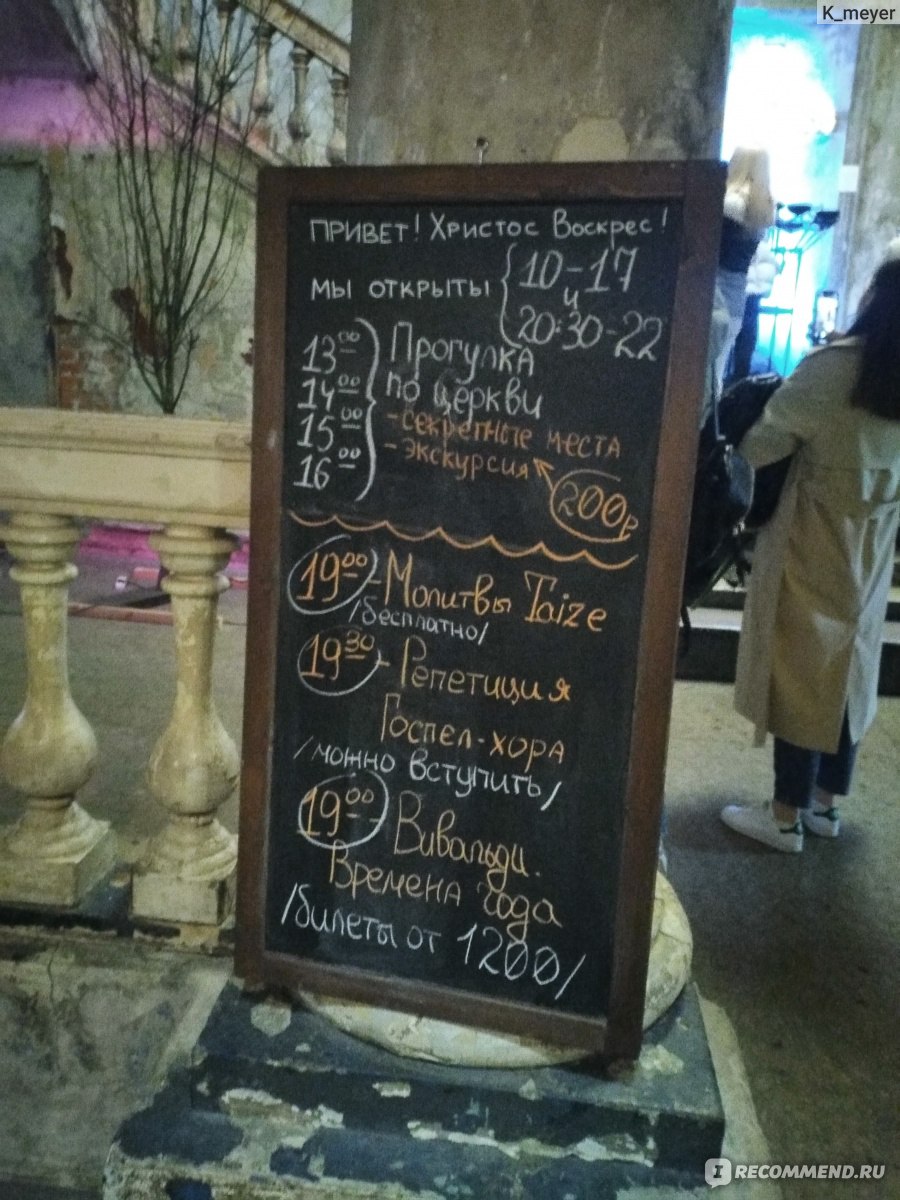 K_meyer
ПРИВЕТ! Христос Воскрес!
мы открыты { 10-17
и
20:30-22
13 00
14 00
15 00
16 00
Прогулка
по церкви
- секретные места
- экскурсия
200р
19 00 - Молитвы Taize
/бесплатно/
19 30 - Репетиция
Госпел-хора
/можно вступить/
19 00 - Вивальди.
Времена года
/билеты от 1200/
IRECOMMEND.RU